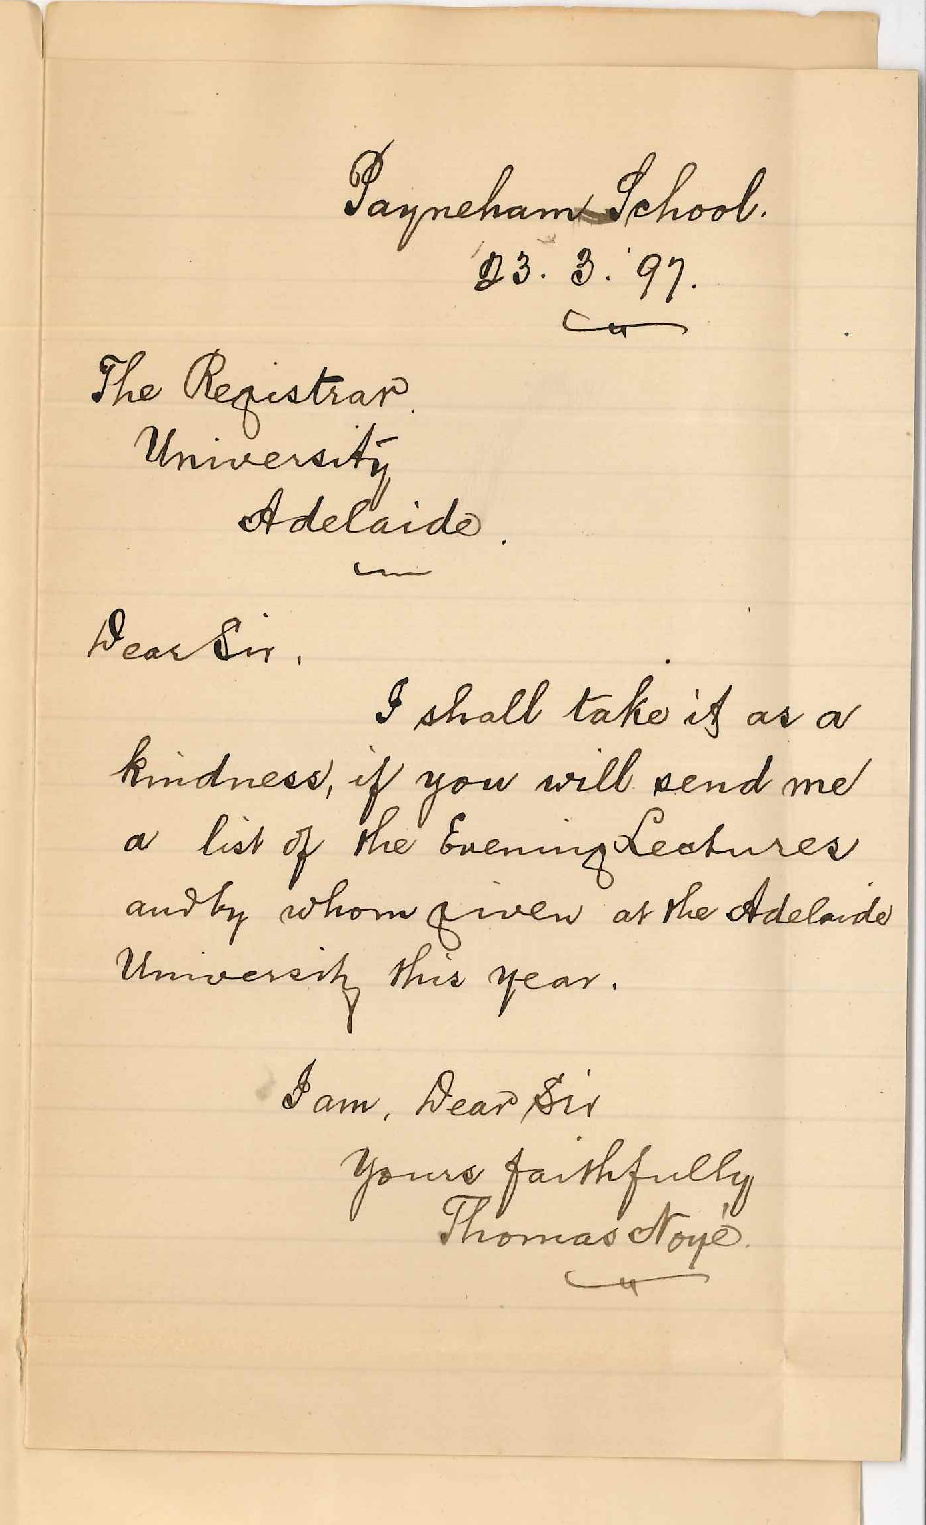 Payneham School.
23. 3. '97.
The Registrar.
University
Adelaide.
Dear Sir,
I shall take it as a
kindness, if you will send me
a list of the Evening Lectures
and by whom given at the Adelaide
University this year.
I am, Dear Sir
Yours faithfully
Thomas Noyé.